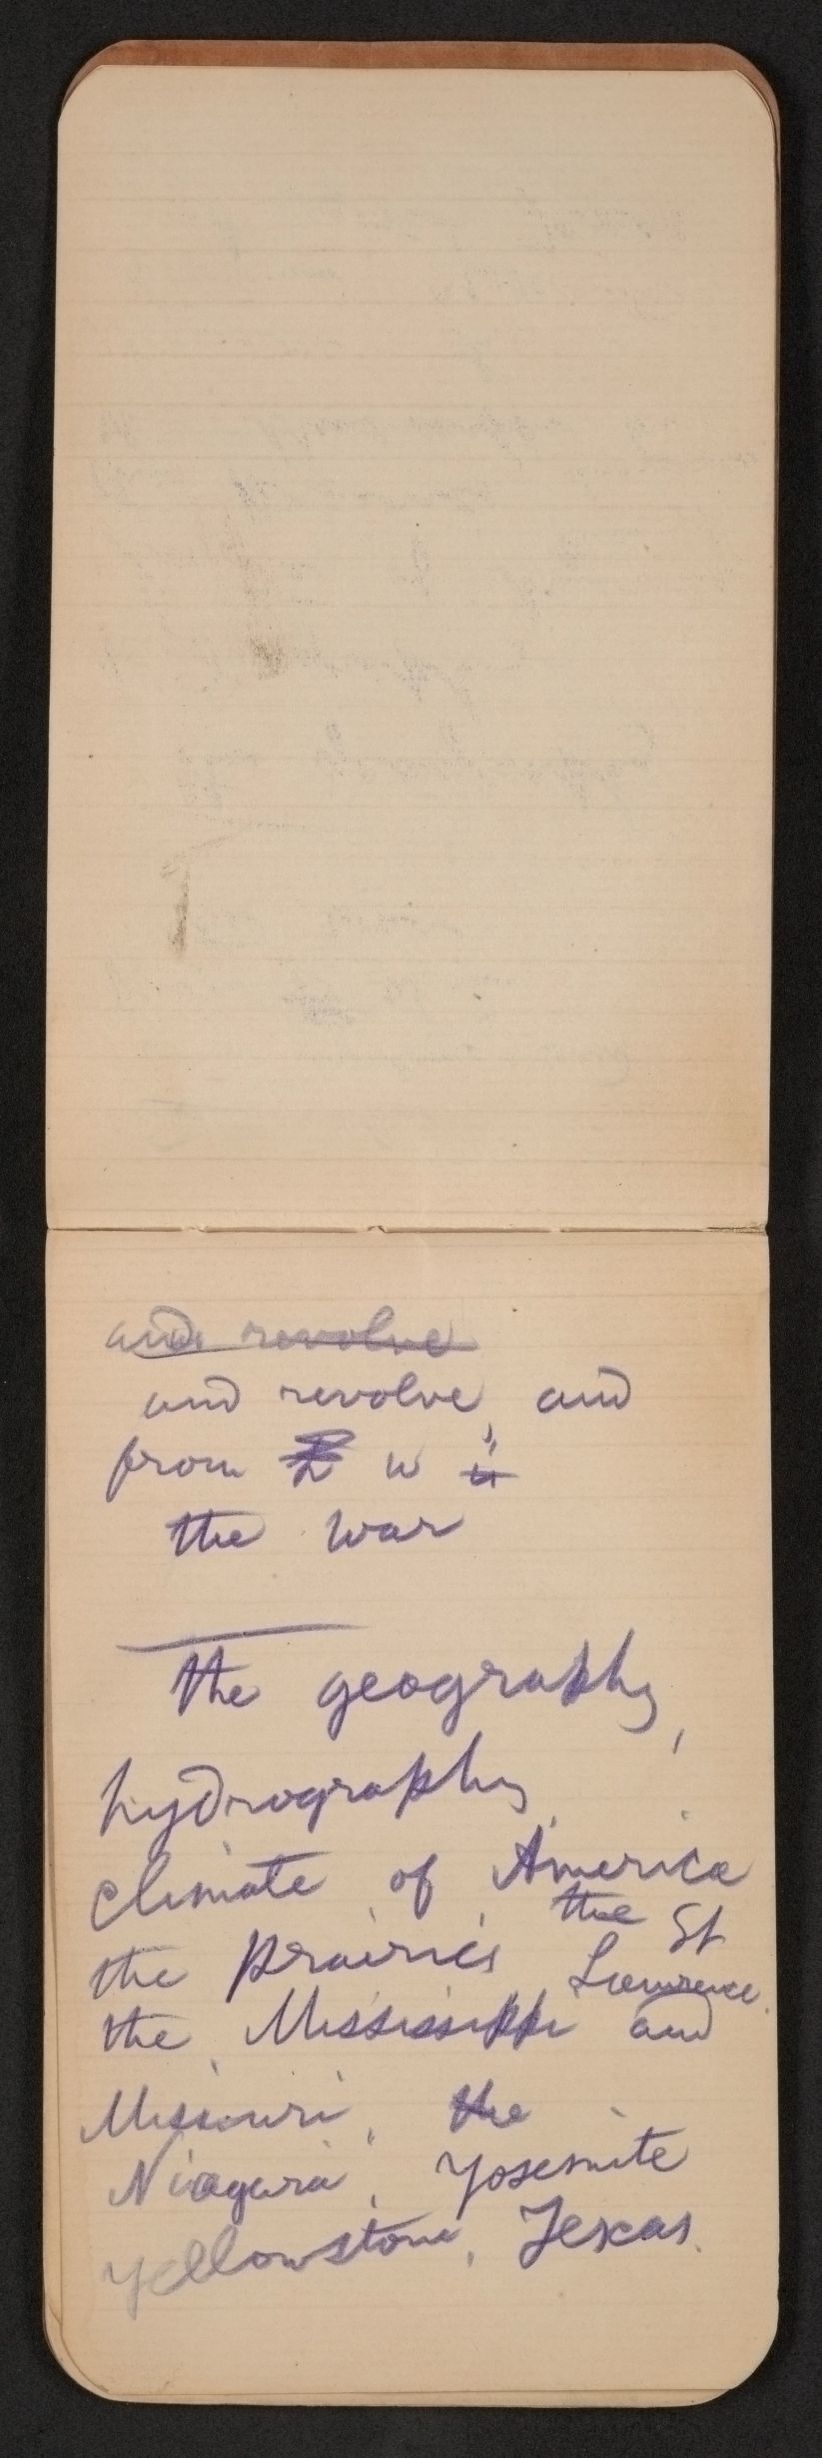 and revolve
and revolve, and
from w
the war
the geography,
hydrography
climate of America
the St
the prairies Lawrence.
the Mississippi and
Missouri, the
Niagara, Yosemite
Yellowstone, Texas.